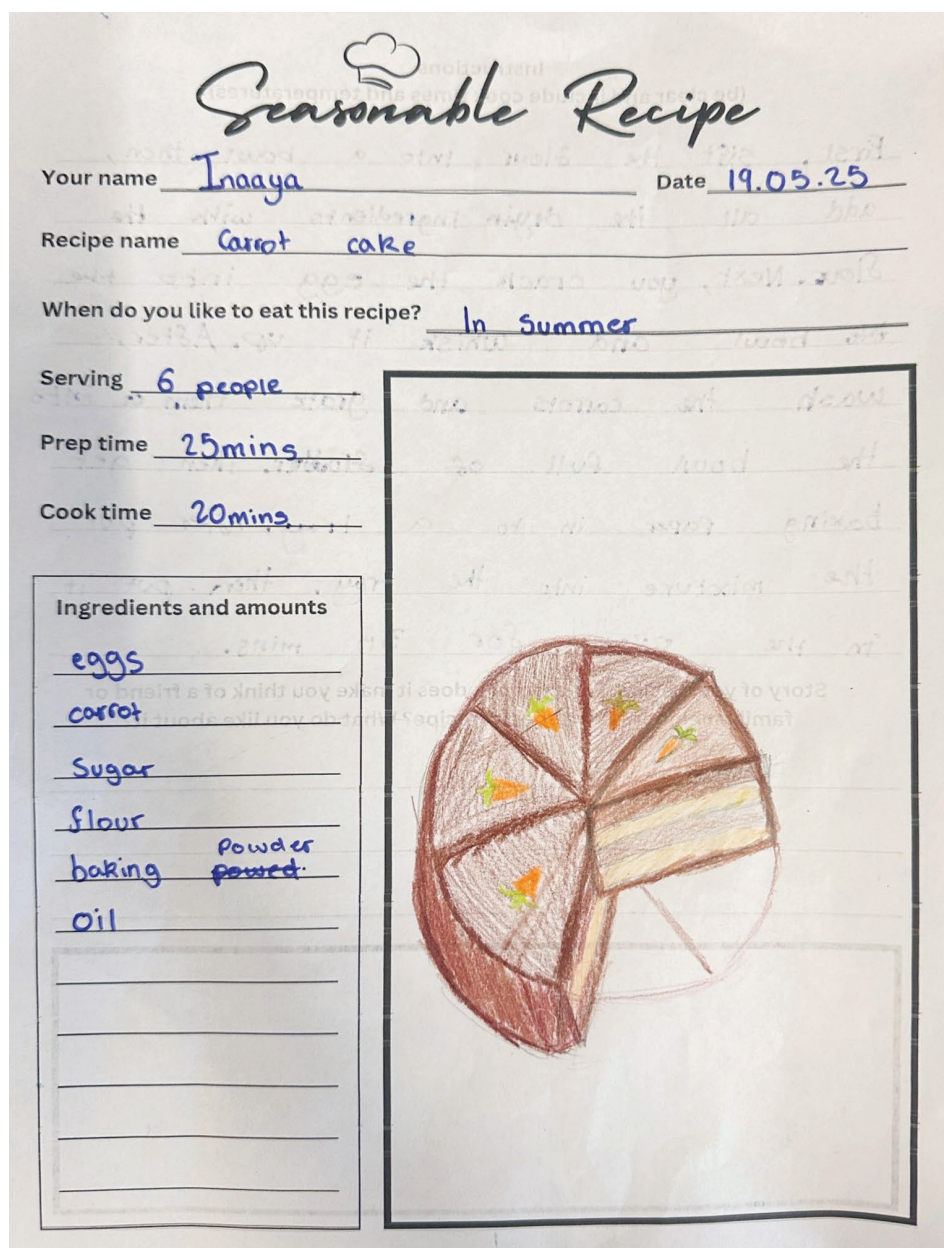 Seasonable Recipe
Your name Inaaya Date 19.05.25
Recipe name Carrot cake
When do you like to eat this recipe? In summer
Serving 6 people
Prep time 25mins
Cook time 20mins
Ingredients and amounts
eggs
carrot
Sugar
flour
powder
baking powed.
oil